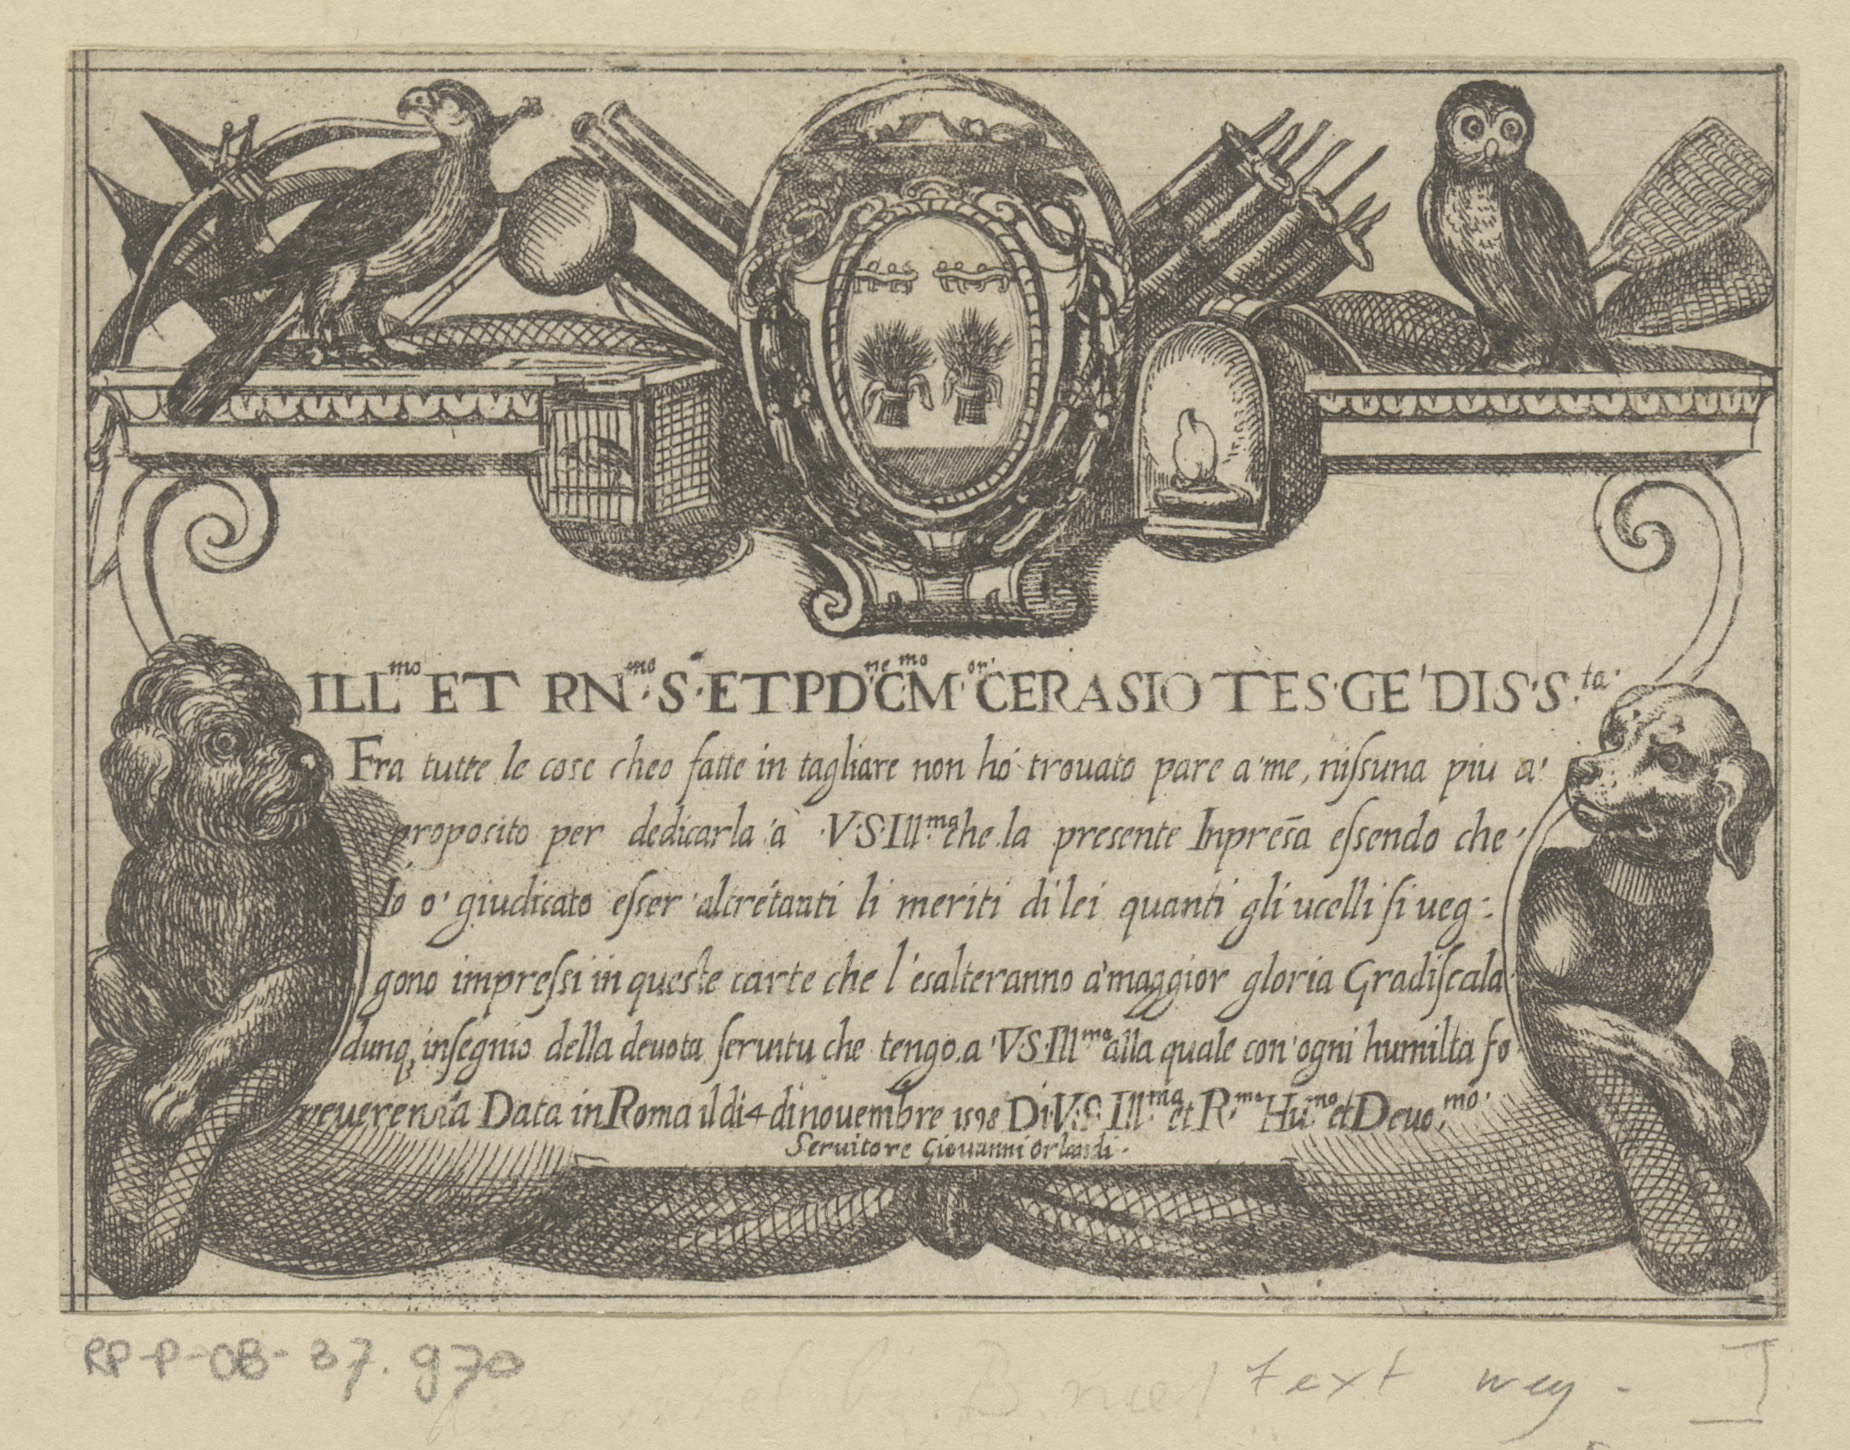 ILL^mo ET RN^mo S·ET PD^ne C^mo M^or CERASIO TES·GE'DI S·S^ta·
Fra tutte le cose cheo fatte in tagliare non ho trouato pare a'me, nißuna piu a'
proposito per dedicarla a V·S·Ill^ma che la presente Impresa eßendo che
Io o' giudicato eßer altretanti li meriti di lei quanti gli ucelli si ueg:
gono impreßi in queste carte che l'esalteranno a maggior gloria Gradiscala
dunq, insegnio della deuota seruitu che tengo a V·S·Ill^ma alla quale con ogni humilta fo
reuerentia Data in Roma il di 4 di nouembre 1598 Di V·S·Ill^ma et R^ma Hu^mo et Deuo^mo
Seruitore Giouanni Orlandi·
RP-P-OB-37.970
text weg -